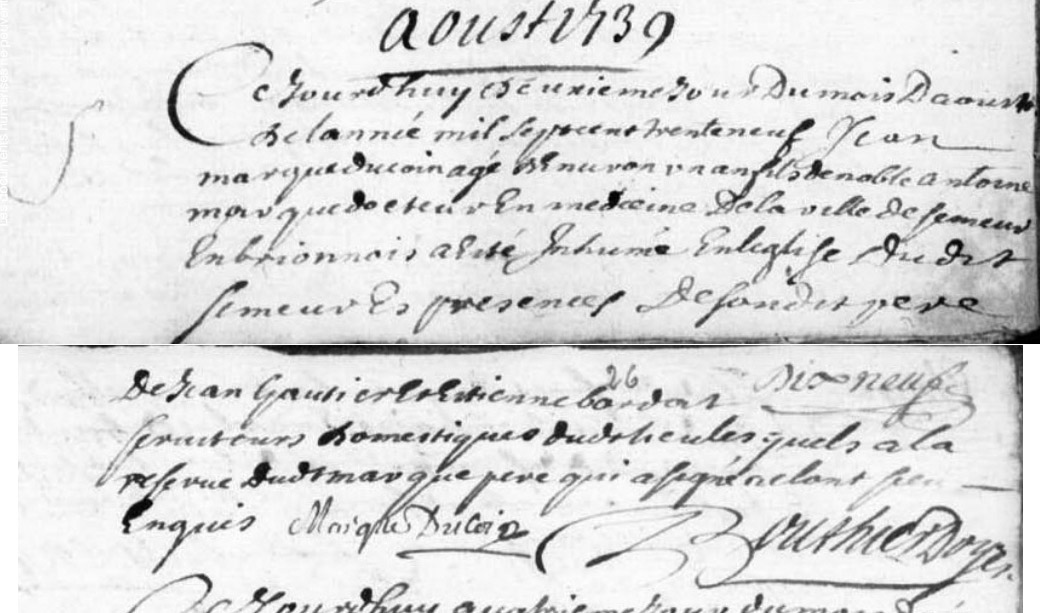 Aoust 1739
Cejourdhuy deuxieme Jour Du mois Daoust
de lannée mil Sept cent trente neuf Jean
marque ducoin agé denviron un an fils de noble antoine
marque docteur En medecine De la ville de semeur
En brionnois a Esté Inhumé En leglise du dit
semeur Es presences De son dit pere
26 Dixneuf
de Jean Gautier Et Etienne bardat
serviteurs domestiques dudt lieu les quels a la
reserve dudt marque pere qui a signé ne lont sceu
Enquis Marque Ducoin Bouthier Doyen.
Cejourdhuy quatrieme Jour du mois